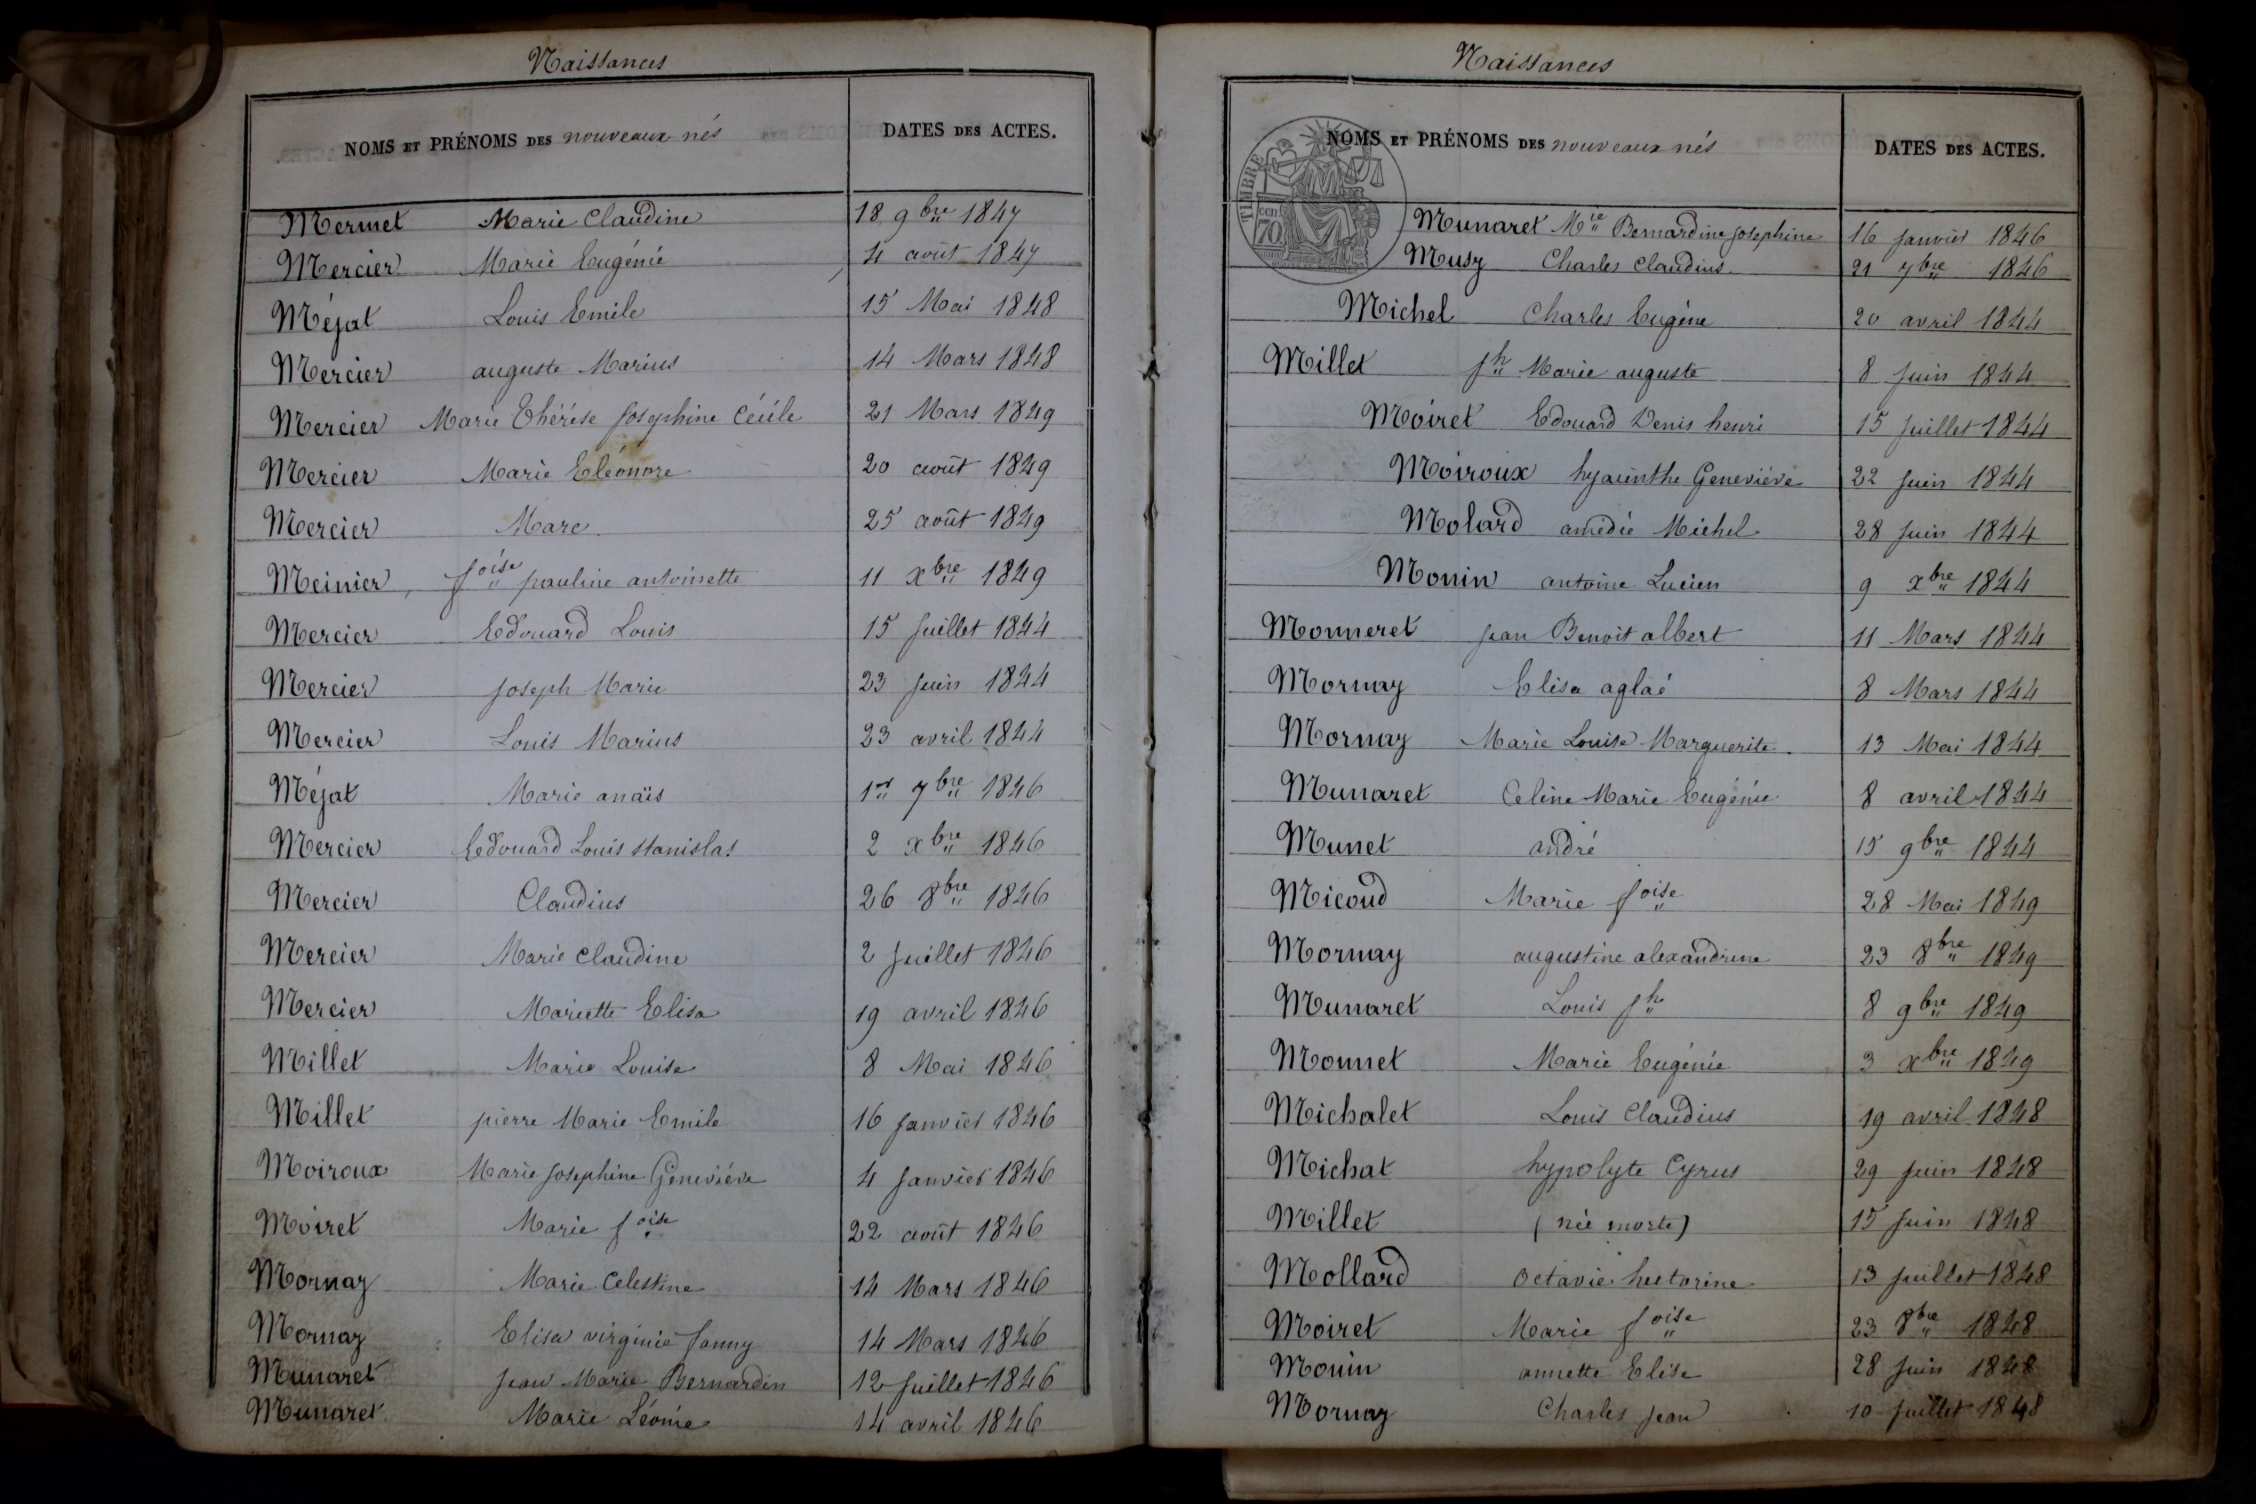 Naissances
NOMS ET PRÉNOMS DES nouveaux nés DATES DES ACTES.
Mermet Marie Claudine 18 9bre 1847
Mercier Marie Eugénie 4 août 1847
Méjat Louis Emile 15 Mai 1848
Mercier auguste Marius 14 Mars 1848
Mercier Marie Thérèse Josephine Cécile 21 Mars 1849
Mercier Marie Eléonore 20 août 1849
Mercier Marc 25 août 1849
Meinier, foise pauline antoinette 11 xbre 1849
Mercier Edouard Louis 15 Juillet 1844
Mercier Joseph Marie 23 Juin 1844
Mercier Louis Marius 23 avril 1844
Méjat Marie anaïs 1er 7bre 1846
Mercier Edouard Louis stanislas 2 xbre 1846
Mercier Claudius 26 8bre 1846
Mercier Marie Claudine 2 Juillet 1846
Mercier Mariette Elisa 19 avril 1846
Millet Marie Louise 8 Mai 1846
Millet pierre Marie Emile 16 Janvier 1846
Moiroux Marie Josephine Geneviève 4 Janvier 1846
Moiret Marie foise 22 août 1846
Mornay Marie Celestine 14 Mars 1846
Mornay Elisa virginie fanny 14 Mars 1846
Munaret Jean Marie Bernardin 12 Juillet 1846
Munaret Marie Léonie 14 avril 1846
Naissances
NOMS ET PRÉNOMS DES nouveaux nés DATES DES ACTES.
TIMBRE
70
Munaret Mie Bernardine Josephine 16 Janvier 1846
Musy Charles Claudius 21 7bre 1846
Michel Charles Eugène 20 avril 1844
Millet Jh Marie auguste 8 Juin 1844
Moiret Edouard Denis henri 15 Juillet 1844
Moiroux hyacinthe Geneviève 22 Juin 1844
Molard amédée Michel 28 Juin 1844
Monin antoine Lucien 9 xbre 1844
Monneret Jean Benoit albert 11 Mars 1844
Mornay Elisa aglaé 8 Mars 1844
Mornay Marie Louise Marguerite 13 Mai 1844
Munaret Celine Marie Eugénie 8 avril 1844
Munet andré 15 9bre 1844
Micoud Marie foise 28 Mai 1849
Mornay augustine alexandrine 23 8bre 1849
Munaret Louis Jh 8 9bre 1849
Monnet Marie Eugénie 3 xbre 1849
Michalet Louis Claudius 19 avril 1848
Michat hypolyte Cyrus 29 Juin 1848
Millet (née morte) 15 Juin 1848
Mollard octavie hectorine 13 Juillet 1848
Moiret Marie foise 23 8bre 1848
Monin annette Elise 28 Juin 1848
Mornay Charles Jean 10 Juillet 1848